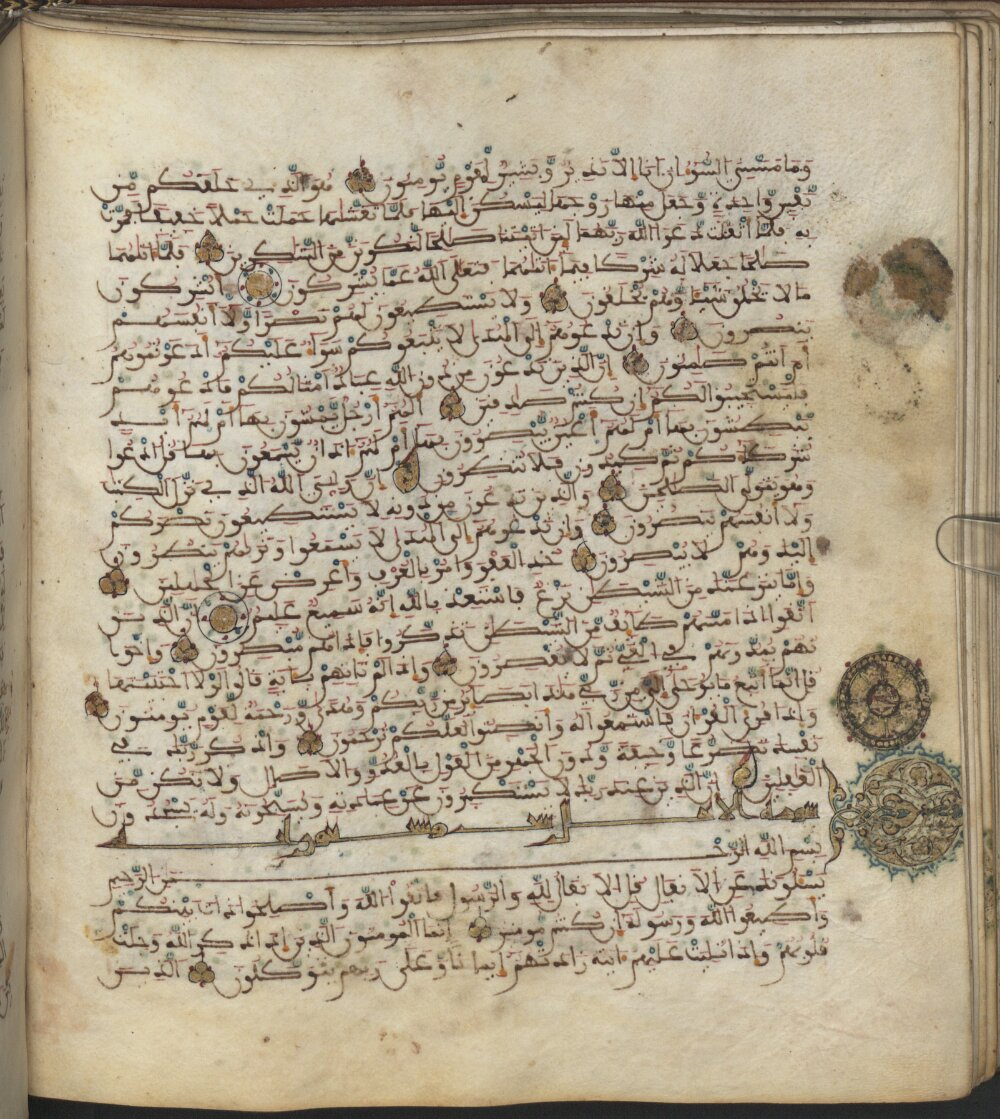 وما مسني السوء ان انا الا نذير وبشير لقوم يومنون هو الذي خلقكم من
نفس وحدة وجعل منها زوجها ليسكن اليها فلما تغشيها حملت حملا خفيفا فمرت
به فلما اثقلت دعوا الله ربهما لئن اتيتنا صلحا لنكونن من الشكرين فلما اتيهما
صلحا جعلا له شركا فيما اتيهما فتعلى الله عما يشركون ايشركون
ما لا يخلق شيا وهم يخلقون ولا يستطيعون لهم نصرا ولا انفسهم
ينصرون وان تدعوهم الى الهدى لا يتبعوكم سواء عليكم ادعوتموهم
ام انتم صمتون ان الذين تدعون من دون الله عباد امثالكم فادعوهم
فليستجيبوا لكم ان كنتم صدقين الهم ارجل يمشون بها ام لهم ايد
يبطشون بها ام لهم اعين يبصرون بها ام لهم اذان يسمعون بها قل ادعوا
شركاءكم ثم كيدون فلا تنظرون ان وليي الله الذي نزل الكتب
وهو يتولى الصلحين والذين تدعون من دونه لا يستطيعون نصركم
ولا انفسهم ينصرون وان تدعوهم الى الهدى لا يسمعوا وتريهم ينظرون
اليك وهم لا يبصرون خذ العفو وامر بالعرف واعرض عن الجهلين
واما ينزغنك من الشيطن نزغ فاستعذ بالله انه سميع عليم ان الذين
اتقوا اذا مسهم طيف من الشيطن تذكروا فاذا هم مبصرون واخو
نهم يمدونهم في الغي ثم لا يقصرون واذا لم تاتهم باية قالوا لولا اجتبيتها
قل انما اتبع ما يوحى الي من ربي هذا بصاير من ربكم وهدى ورحمة لقوم يومنون
واذا قرئ القران فاستمعوا له وانصتوا لعلكم ترحمون واذكر ربك في
نفسك تضرعا وخيفة ودون الجهر من القول بالغدو والاصال ولا تكن من
الغفلين ان الذين عند ربك لا يستكبرون عن عبادته ويسبحونه وله يسجدون
بسم الله الرحمن الرحيم
يسلونك عن الانفال قل الانفال لله والرسول فاتقوا الله واصلحوا ذات بينكم
واطيعوا الله ورسوله ان كنتم مومنين انما المومنون الذين اذا ذكر الله وجلت
قلوبهم واذا تليت عليهم ايته زادتهم ايمنا وعلى ربهم يتوكلون الذين